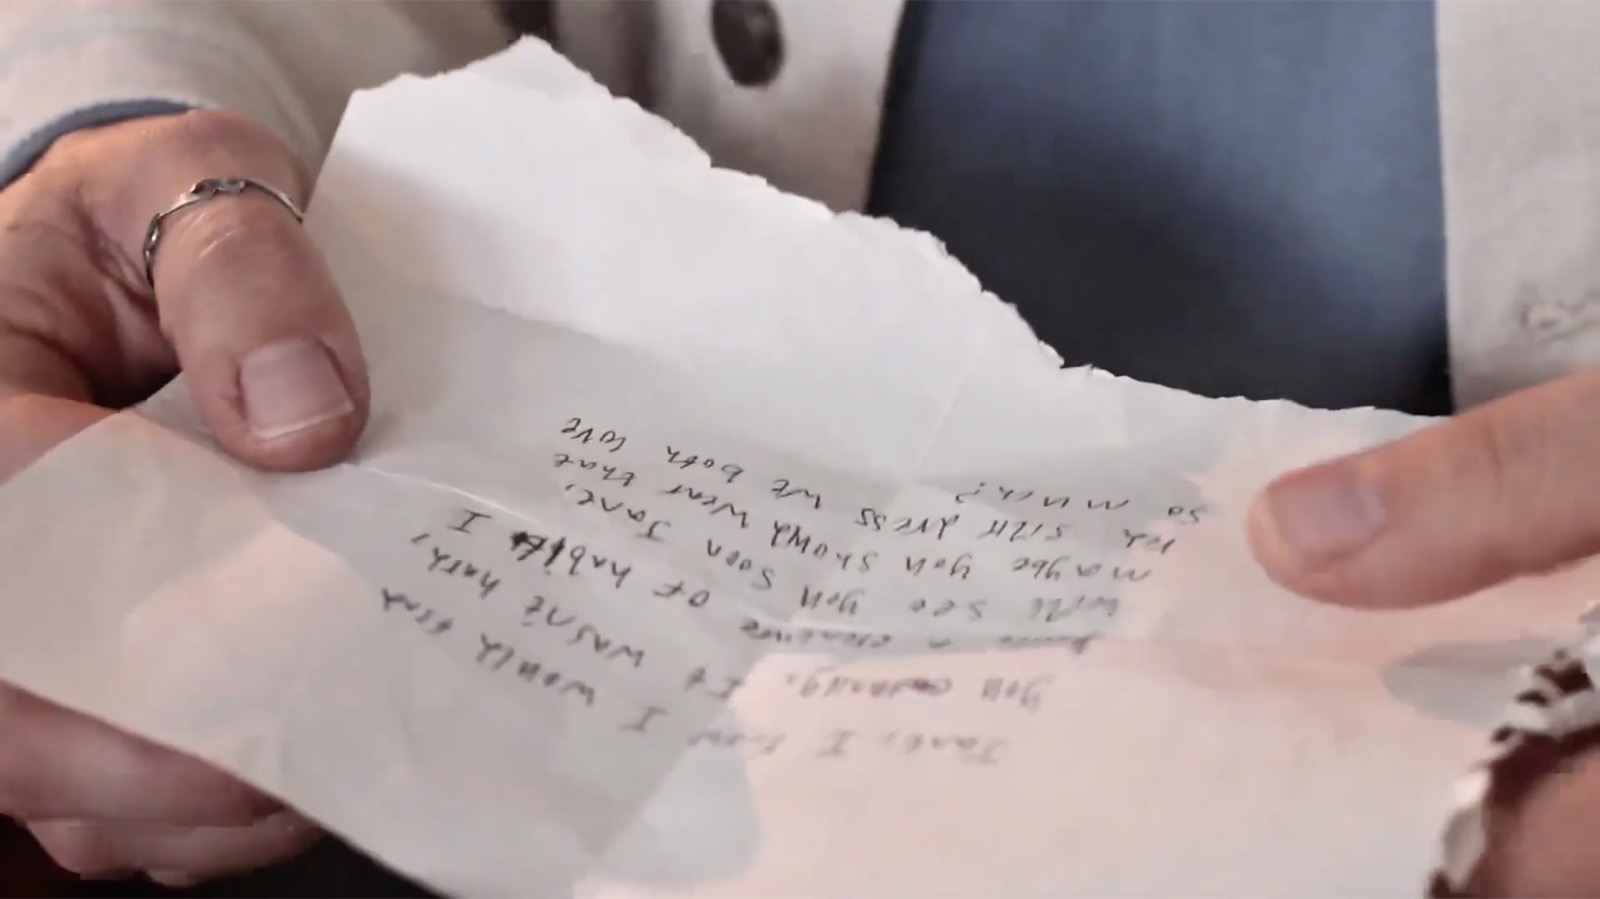 Jane, I knew I would find
you It wasn't hard,
a creature of habit I
will see you soon Jane,
maybe you should wear that
red silk dress we both love
so much?